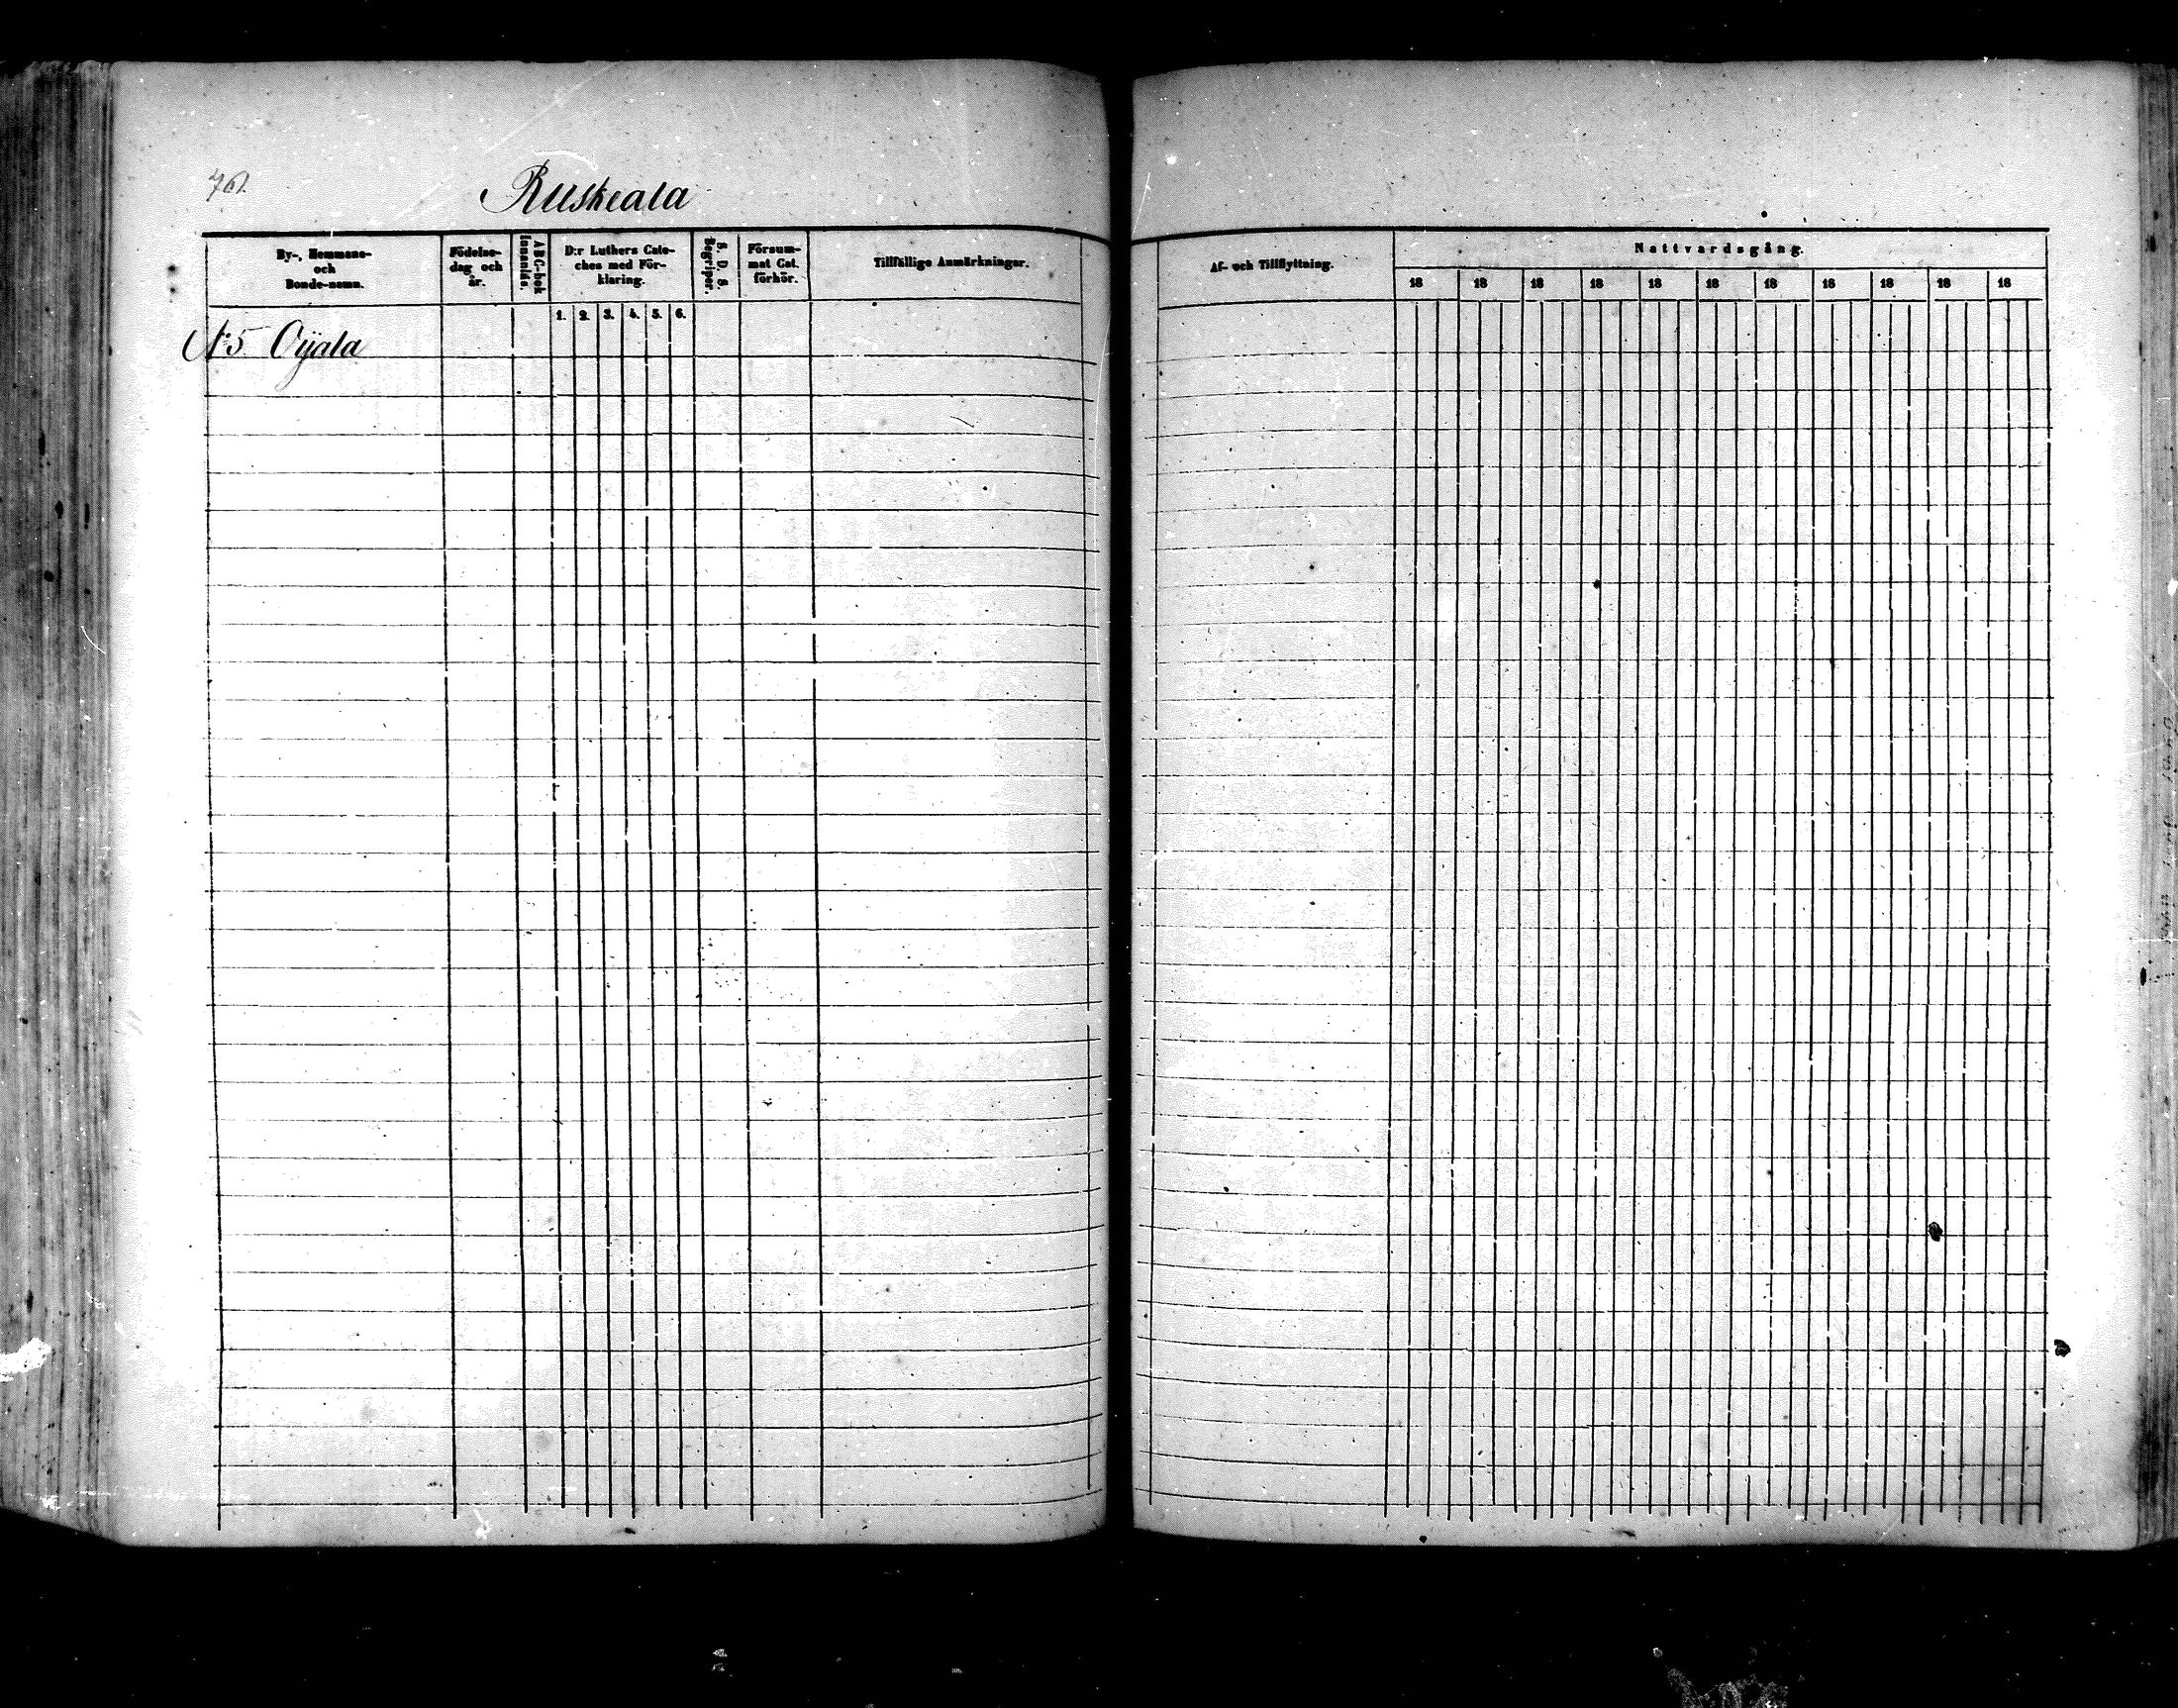 76.
Ruskeala
By-, Hemmans-
och
Bonde-namn.
Födelse-
dag och
år.
ABC-bok
innanläs.
D:r Luthers Cate-
ches med För-
klaring.
S. D. S.
Begriper.
Försum-
mat Cat.
förhör.
Tillfällige Anmärkningar.
1. 2. 3. 4. 5. 6.
N:5 Ojala
Af- och Tillflyttning.
Nattvardsgång.
18 18 18 18 18 18 18 18 18 18 18